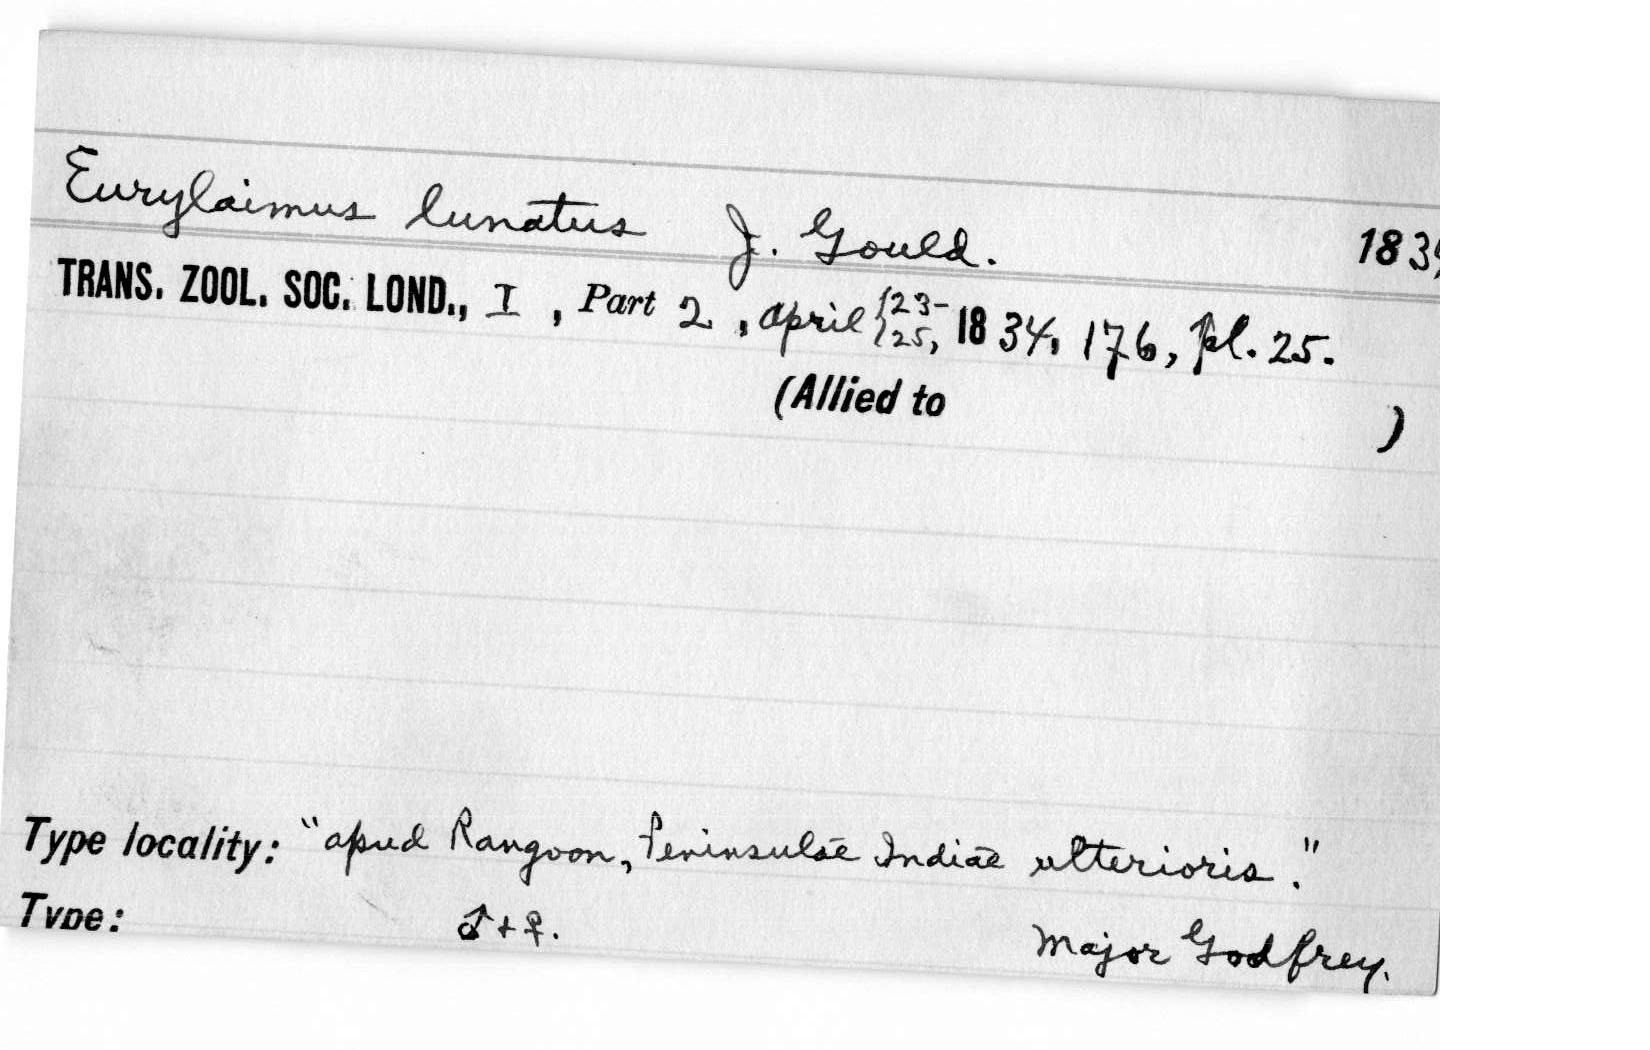 Eurylaimus lunatus J. Gould. 183
TRANS. ZOOL. SOC. LOND., I, Part 2, april {23-25, 1834, 176, pl. 25.
(Allied to )
Type locality: "apud Rangoon, Peninsulae Indiae ulterioris."
Type: ♂+♀. Major Godfrey.